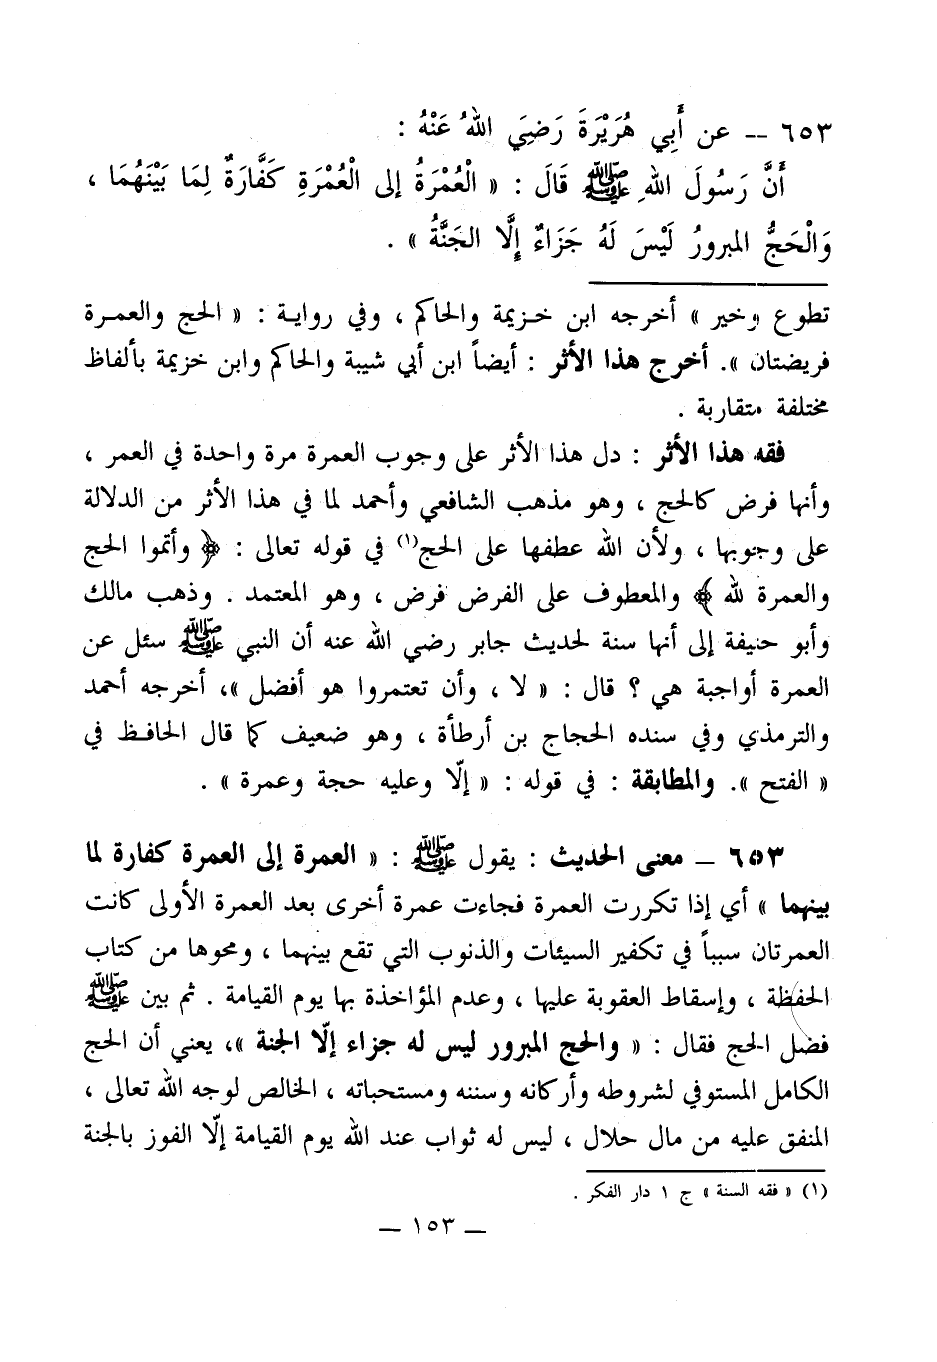 ٦٥٣ -- عن أَبِي هُرَيْرَةَ رَضِيَ اللهُ عَنْهُ :
أَنَّ رَسُولَ اللهِ ﷺ قَالَ : « الْعُمْرَةُ إلى الْعُمْرَةِ كَفَّارَةٌ لِمَا بَيْنَهُمَا ،
وَالْحَجُّ المبرورُ لَيْسَ لَهُ جَزَاءٌ إِلَّا الجَنَّةُ » .
تطوع وخير » أخرجه ابن خزيمة والحاكم ، وفي رواية : « الحج والعمرة
فريضتان ». أخرج هذا الأثر : أيضاً ابن أبي شيبة والحاكم وابن خزيمة بألفاظ
مختلفة متقاربة .
فقه هذا الأثر : دل هذا الأثر على وجوب العمرة مرة واحدة في العمر ،
وأنها فرض كالحج ، وهو مذهب الشافعي وأحمد لما في هذا الأثر من الدلالة
على وجنوبها ، ولأن الله عطفها على الحج(١) في قوله تعالى : ﴿ وأتموا الحج
والعمرة لله ﴾ والمعطوف على الفرض فرض ، وهو المعتمد . وذهب مالك
وأبو حنيفة إلى أنها سنة لحديث جابر رضي الله عنه أن النبي ﷺ سئل عن
العمرة أواجبة هي ؟ قال : « لا ، وأن تعتمروا هو أفضل »، أخرجه أحمد
والترمذي وفي سنده الحجاج بن أرطأة ، وهو ضعيف كما قال الحافظ في
« الفتح ». والمطابقة : في قوله : « إلّا وعليه حجة وعمرة » .
٦٥٣ – معنى الحديث : يقول ﷺ : « العمرة إلى العمرة كفارة لما
بينهما » أي إذا تكررت العمرة فجاءت عمرة أخرى بعد العمرة الأولى كانت
العمرتان سبباً في تكفير السيئات والذنوب التي تقع بينهما ، ومحوها من كتاب
الحفظة ، وإسقاط العقوبة عليها ، وعدم المؤاخذة بها يوم القيامة . ثم بين ﷺ
فضل الحج فقال : « والحج المبرور ليس له جزاء إلّا الجنة »، يعني أن الحج
الكامل المستوفي لشروطه وأركانه وسننه ومستحباته ، الخالص لوجه الله تعالى ،
المنفق عليه من مال حلال ، ليس له ثواب عند الله يوم القيامة إلّا الفوز بالجنة
(١) « فقه السنة » ج ١ دار الفكر .
— ١٥٣ —